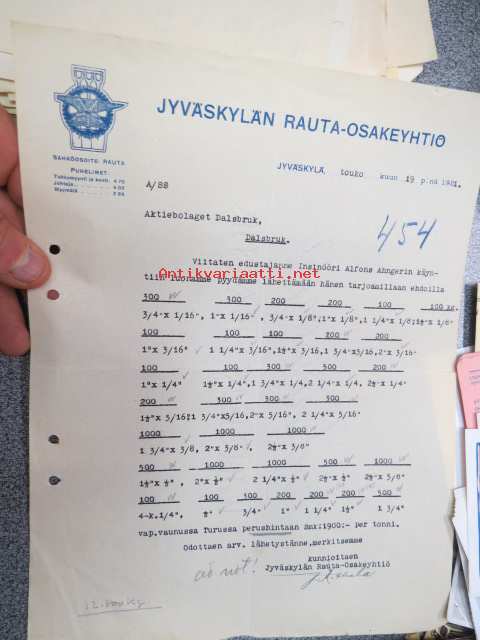 JYVÄSKYLÄN RAUTA-OSAKEYHTIÖ
SÄHKÖOSOITE: RAUTA
PUHELIMET:
Tukkumyynti ja kontt. 4 70
Johtaja 4 03
Myymälä 2 84
JYVÄSKYLÄ, touko kuun 19 p:nä 1921.
A/SS
454
Aktiebolaget Dalsbruk,
Dalsbruk.
Viitaten edustajanne Insinööri Alfons Ahngerin käyn-
tiin luonamme pyydämme lähettämään hänen tarjoamillaan ehdoilla
Antikvariaatti.net
300 300 200 200 100 100 kg.
3/4"x 1/16", 1"x 1/16", 3/4"x 1/8",1"x 1/8",1 1/4"x 1/8",1½"x 1/8"
100 100 100 300 200
1"x 3/16" 1 1/4"x 3/16",1½"x 3/16,1 3/4"x3/16,2"x 3/16"
100 300 100 500 200
1"x 1/4" 1½"x 1/4",1 3/4"x 1/4,2 1/4"x 1/4, 2½"x 1/4"
200 300 300 300
1½"x 5/16", 1 3/4"x5/16,2"x 5/16", 2 1/4"x 5/16"
1000 1000 1000
1 3/4"x 3/8, 2"x 3/8", 2½"x 3/8"
500 1000 1000 500 1000
1½"x ½", 2"x ½" 2 1/4"x ½" 2½"x ½" 2½"x 5/8"
100 100 200 500 500 200 200
4-k.1/4", ½" 3/4" 1" 1 1/4" 1½" 1 3/4"
vap.vaunussa Turussa perushintaan Smk:1900:- per tonni.
Odottaen arv. lähetystänne,merkitsemme
kunnioittaen
Jyväskylän Rauta-Osakeyhtiö